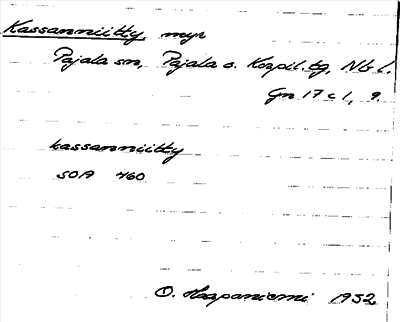 Kassanniitty myr
Pajala sn, Pajala o. Korpil. tg, Nb l.
Gn 17 c 1, 9.
kassanniitty
SOA 460
O. Haapaniemi 1932